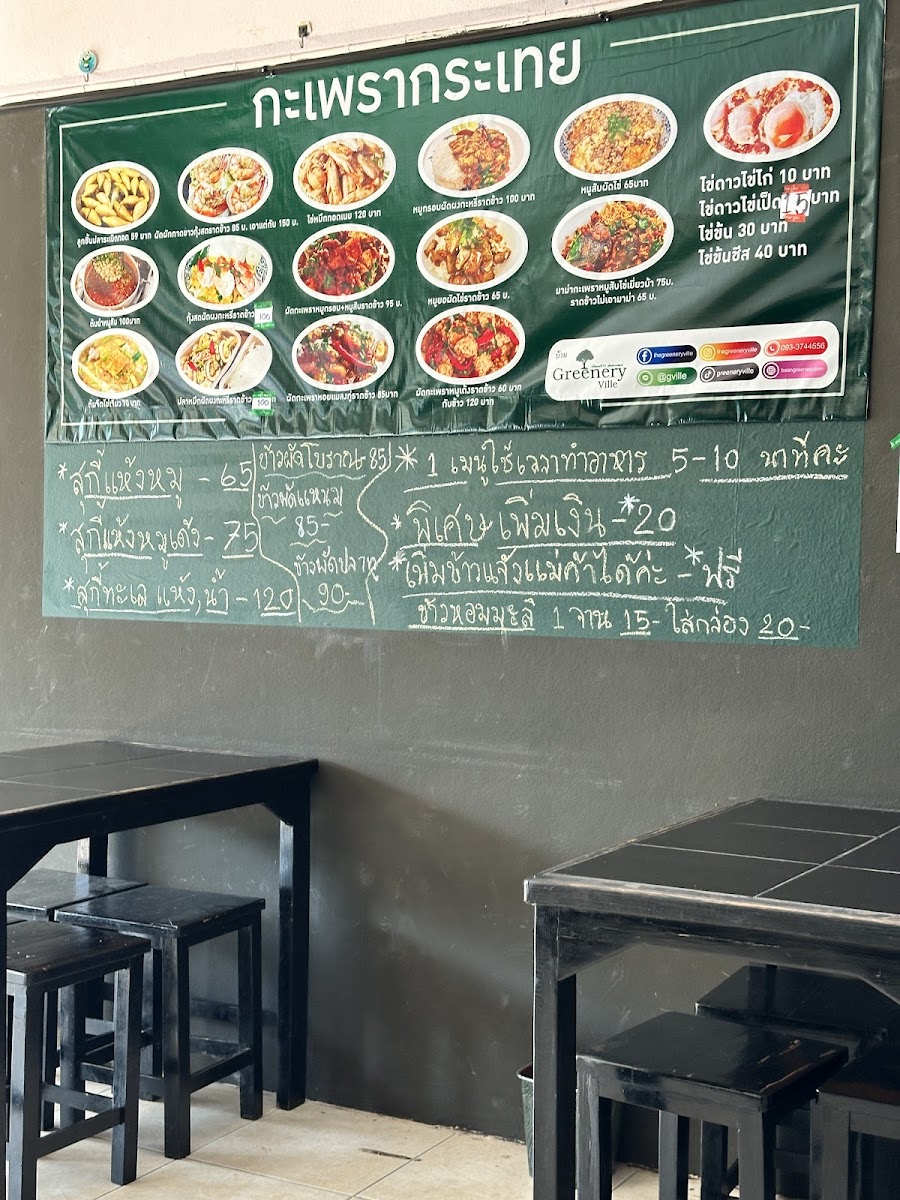 กะเพรากระเทย
ลูกชิ้นปลาระเบิดทอด 59 บาท
ผัดผักกาดขาวกุ้งสดราดข้าว 85 บ. เอาแต่กับ 150 บ.
ไข่หมึกทอดเนย 120 บาท
หมูกรอบผัดผงกะหรี่ราดข้าว 100 บาท
หมูสับผัดไข่ 65บาท
ไข่ดาวไข่ไก่ 10 บาท
ไข่ดาวไข่เป็ด บาท
ไข่ข้น 30 บาท
ไข่ข้นชีส 40 บาท
100บาท
กุ้งสดผัดผงกะหรี่ราดข้าว
ผัดกะเพราหมูกรอบ+หมูสับราดข้าว 95 บ.
หมูยอผัดไข่ราดข้าว 65 บ.
มาม่ากะเพราหมูสับไข่เยี่ยวม้า 75บ.
ราดข้าวไม่เอามาม่า 65 บ.
ปลาหมึกผัดผงกะหรี่ราดข้าว
ผัดกะเพราหอยแมลงภู่ราดข้าว 85บาท
ผัดกะเพราหมูเด้งราดข้าว 60 บาท
กับข้าว 120 บาท
บ้าน
Greenery
Ville
thegreeneryville
thegreeneryville
093-3744556
@gville
greeneryville
baangreenery.com
*สุกี้แห้งหมู - 65
*สุกี้แห้งหมูเด้ง - 75
*สุกี้ทะเล แห้ง, น้ำ - 120
ข้าวผัดโบราณ-85
ข้าวผัดแหนม
85-
90-
* 1 เมนูใช้เวลาทำอาหาร 5-10 นาทีคะ
*พิเศษ เพิ่มเงิน-*20
*เพิ่มข้าวแจ้งแม่ค้าได้ค่ะ -*ฟรี
ข้าวหอมมะลิ 1 จาน 15- ใส่กล่อง 20-